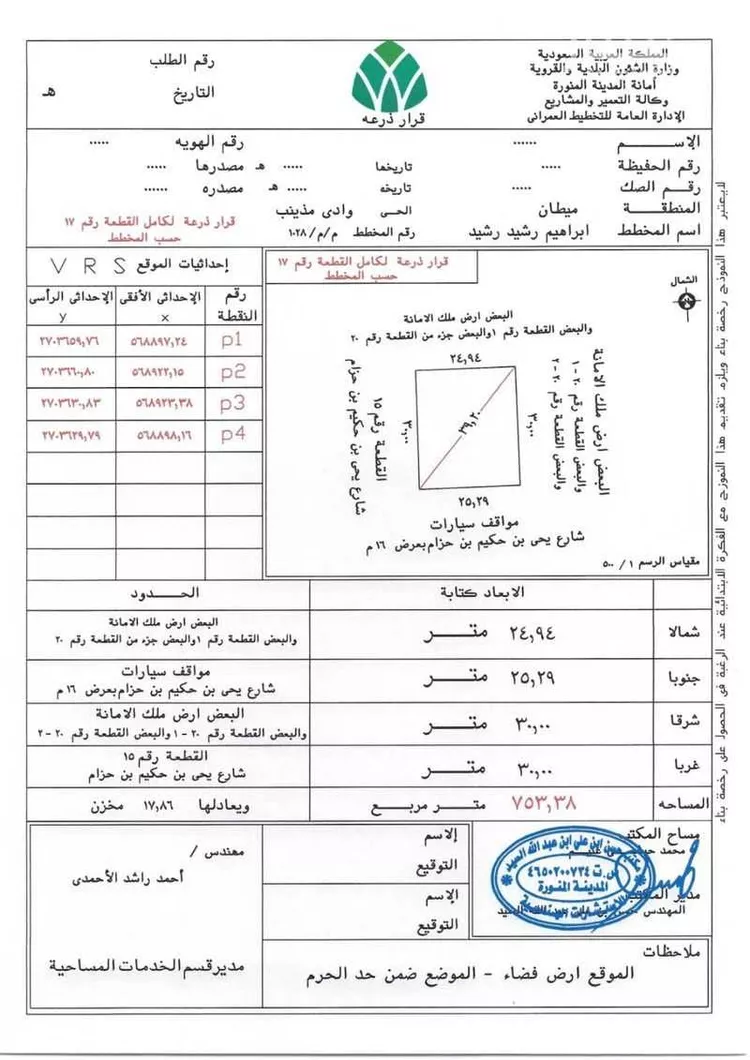 المملكة العربية السعودية
وزارة الشئون البلدية والقروية
أمانة المدينة المنورة
وكالة التعمير والمشاريع
الإدارة العامة للتخطيط العمرانى
قرار ذرعه
رقم الطلب
التاريخ هـ
الإســـــــم ...... رقم الهويه .....
رقم الحفيظة ..... تاريخها ..... هـ مصدرها .....
رقـــم الصك ..... تاريخه ..... هـ مصدره ......
المنطقـــــة ميطان الحـــى وادى مذينب
اسم المخطط ابراهيم رشيد رشيد رقم المخطط م/م/١٠٢٨
قرار ذرعة لكامل القطعة رقم ١٧
حسب المخطط
قرار ذرعة لكامل القطعة رقم ١٧
حسب المخطط
الشمال
البعض ارض ملك الامانة
والبعض القطعة رقم ١والبعض جزء من القطعة رقم ٢٠
٢٤,٩٤
البعض ارض ملك الامانة
والبعض القطعة رقم ٢٠-١
والبعض القطعة رقم ٢٠-٢
٣٠,٠٠
٣٠,٠٠
القطعة رقم ١٥
شارع يحى بن حكيم بن حزام
٢٥,٢٩
مواقف سيارات
شارع يحى بن حكيم بن حزام بعرض ١٦ م
مقياس الرسم ١/ ٥٠٠
إحداثيات الموقع V R S
رقم النقطة الإحداثى الأفقى x الإحداثى الرأسى y
p1 ٥٦٨٨٩٧,٢٤ ٢٧٠٣٦٥٩,٧٦
p2 ٥٦٨٩٢٢,١٥ ٢٧٠٣٦٦٠,٨٠
p3 ٥٦٨٩٢٣,٣٨ ٢٧٠٣٦٣٠,٨٣
p4 ٥٦٨٨٩٨,١٦ ٢٧٠٣٦٢٩,٧٩
الابعاد كتابة الحــــــدود
شمالا ٢٤,٩٤ متـــــر
البعض ارض ملك الامانة
والبعض القطعة رقم ١والبعض جزء من القطعة رقم ٢٠
جنوبا ٢٥,٢٩ متـــــر
مواقف سيارات
شارع يحى بن حكيم بن حزام بعرض ١٦ م
شرقا ٣٠,٠٠ متـــــر
البعض ارض ملك الامانة
والبعض القطعة رقم ٢٠-١ والبعض القطعة رقم ٢٠-٢
غربا ٣٠,٠٠ متـــــر
القطعة رقم ١٥
شارع يحى بن حكيم بن حزام
المساحه ٧٥٣,٣٨ متـــر مربـــع ويعادلها ١٧,٨٦ مخزن
مساح المكتب
محمد
مدير المكتب
المهندس
س.ت ٤٦٥٠٢٠٠٧٢٤
المدينة المنورة
الإسم
التوقيع
الإسم
التوقيع
مهندس /
أحمد راشد الأحمدى
مدير قسم الخدمات المساحية
ملاحظات
الموقع ارض فضاء - الموضع ضمن حد الحرم
لايعتبر هذا النموذج رخصة بناء ويلزم تقديم هذا النموزج مع الفكرة الابتدائية عند الرغبة فى الحصول على رخصة بناء